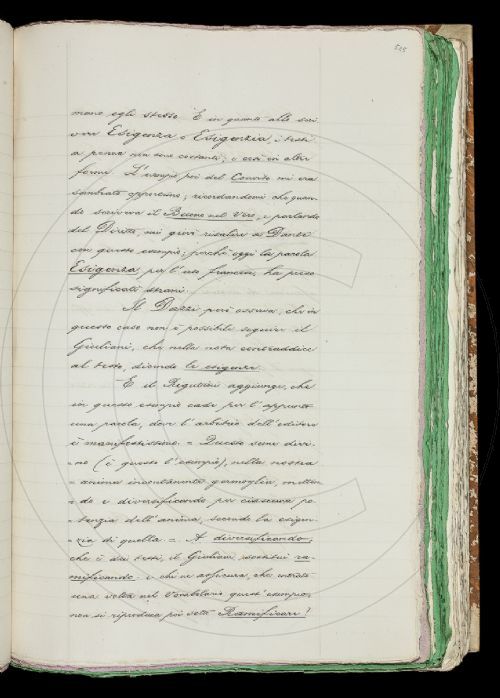 505
mano egli stesso. E in quanto allo scri
vere Esigenza o Esigenzia, i testi
a penna non sono costanti; e così in altre
forme. L'esempio poi del Convito mi era
sembrato opportuno; ricordandomi che quan-
do scriveva il Buono nel Vero, e parlando
del Diritto, mi giovò risalire a Dante
con questo esempio; perchè oggi la parola
Esigenza, per l'uso francese, ha preso
significati strani.
Il Dazzi però osserva, che in
questo caso non è possibile seguire il
Giuliani, che nella nota contraddice
al testo, dicendo la esigenza.
E il Rigutini aggiunge, che
in questo esempio cade per l'appunto
una parola, dove l'arbitrio dell'editore
è manifestissimo. = Questo seme divi-
= no (è questo l'esempio), nella nostra
= anima incontanente germoglia, metten
= do e diversificando per ciascuna po-
= tenzia dell'anima, secondo la esigen-
= zia di quella =. A diversificando,
che è dei testi, il Giuliani sostituì ra-
mificando. e chi ne assicura, che entrato
una volta nel Vocabolario quest'esempio,
non si riproduca poi sotto Ramificare!